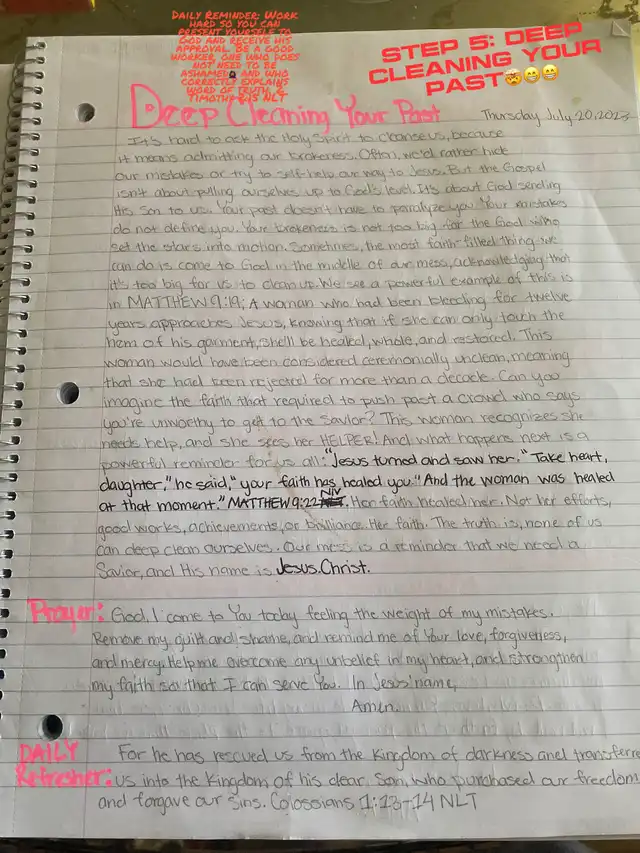 DAILY REMINDER: WORK
HARD SO YOU CAN
PRESENT YOURSELF TO
GOD AND RECEIVE HIS
APPROVAL. BE A GOOD
WORKER, ONE WHO DOES
NOT NEED TO BE
ASHAMED AND WHO
CORRECTLY EXPLAINS
WORD OF TRUTH. 2
TIMOTHY 2:15 NLT
STEP 5: DEEP
CLEANING YOUR
PAST🤯😁😬
Deep Cleaning Your Past
Thursday July 20, 2023
It's hard to ask the Holy Spirit to cleanse us, because
it means admitting our brokeness. Often, we'd rather hide
our mistakes or try to self-help our way to Jesus. But the Gospel
isn't about pulling ourselves up to God's level. It's about God sending
His Son to us. Your past doesn't have to paralyze you. Your mistakes
do not define you. Your brokeness is not too big for the God who
set the stars into motion. Sometimes, the most faith-filled thing we
can do is come to God in the middle of our mess, acknowledging that
it's too big for us to clean up. We see a powerful example of this is
in MATTHEW 9:19; A woman who had been bleeding for twelve
years approaches Jesus, knowing that if she can only touch the
hem of his garment, she'll be healed, whole, and restored. This
woman would have been considered ceremonially unclean, meaning
that she had been rejected for more than a decade. Can you
imagine the faith that required to push past a crowd who says
you're unworthy to get to the Savior? This woman recognizes she
needs help, and she sees her HELPER! And what happens next is a
powerful reminder for us all: "Jesus turned and saw her." Take heart,
daughter," he said, "your faith has healed you." And the woman was healed
at that moment." MATTHEW 9:22 NIV. Her faith healed her. Not her efforts,
good works, achievements, or brilliance. Her faith. The truth is, none of us
can deep clean ourselves. Our mess is a reminder that we need a
Savior, and His name is Jesus Christ.
Prayer: God, I come to You today feeling the weight of my mistakes.
Remove my guilt and shame, and remind me of Your love, forgiveness,
and mercy. Help me overcome any unbelief in my heart, and strengthen
my faith so that I can serve You. In Jesus' name,
Amen.
DAILY For he has rescued us from the Kingdom of darkness and transferre
Refresher: us into the Kingdom of his dear Son, who purchased our freedom
and forgave our sins. Colossians 1:13-14 NLT